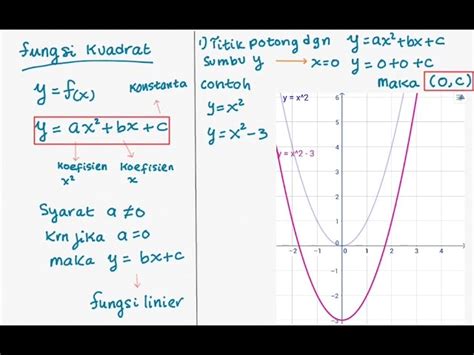 Fungsi Kuadrat
y = f(x)
Konstanta
y = ax² + bx + c
Koefisien x²
Koefisien x
Syarat a ≠ 0
krn jika a = 0
maka y = bx + c
fungsi linier
1) Titik potong dgn sumbu y → x = 0
y = ax² + bx + c
y = 0 + 0 + c
maka (0, c)
contoh
y = x²
y = x² - 3
y = x^2
y = x^2 - 3
6
5
4
3
2
1
0
-1
-2
-3
-4
-3
-2
-1
0
1
2
3
4